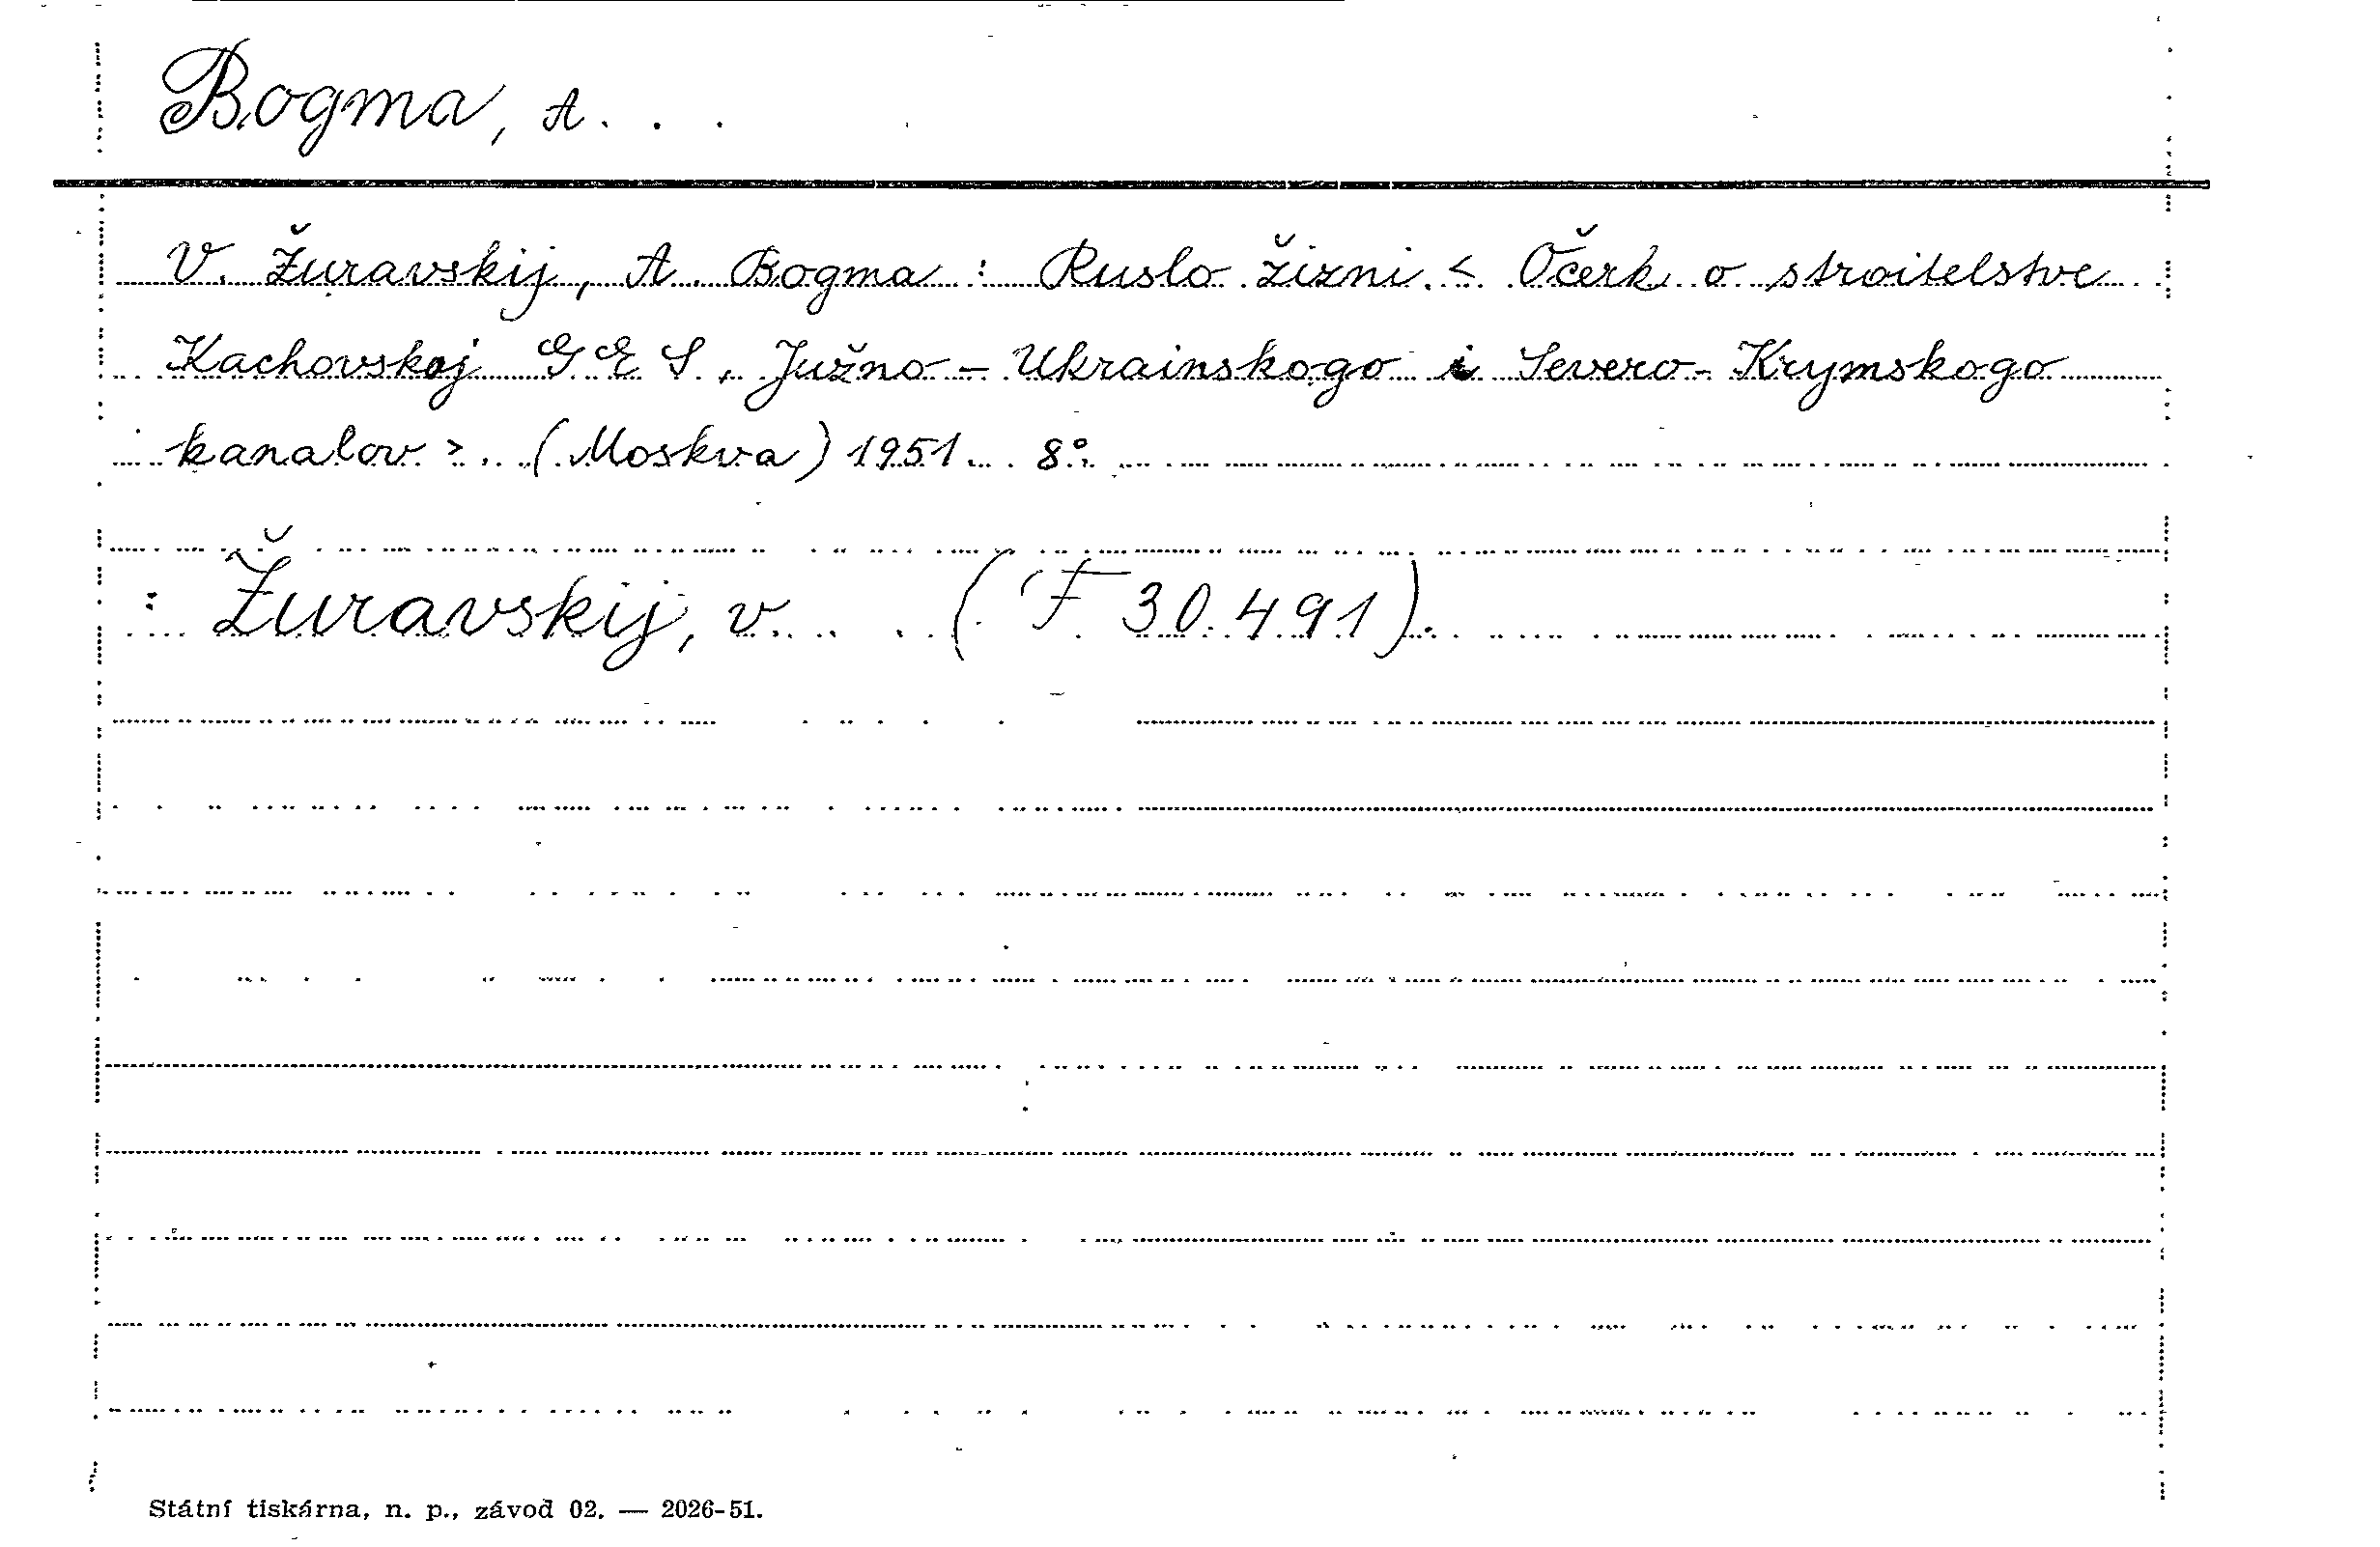 Bogma, A. . .
V. Žuravskij, A. Bogma : Ruslo žizni. < Očerk o stroitelstve
Kachovskoj GES, Južno-Ukrainskogo i Severo-Krymskogo
kanalov >. (Moskva) 1951. 8°.
: Žuravskij, V. . . (F 30.491).
Státní tiskárna, n. p., závod 02. — 2026-51.